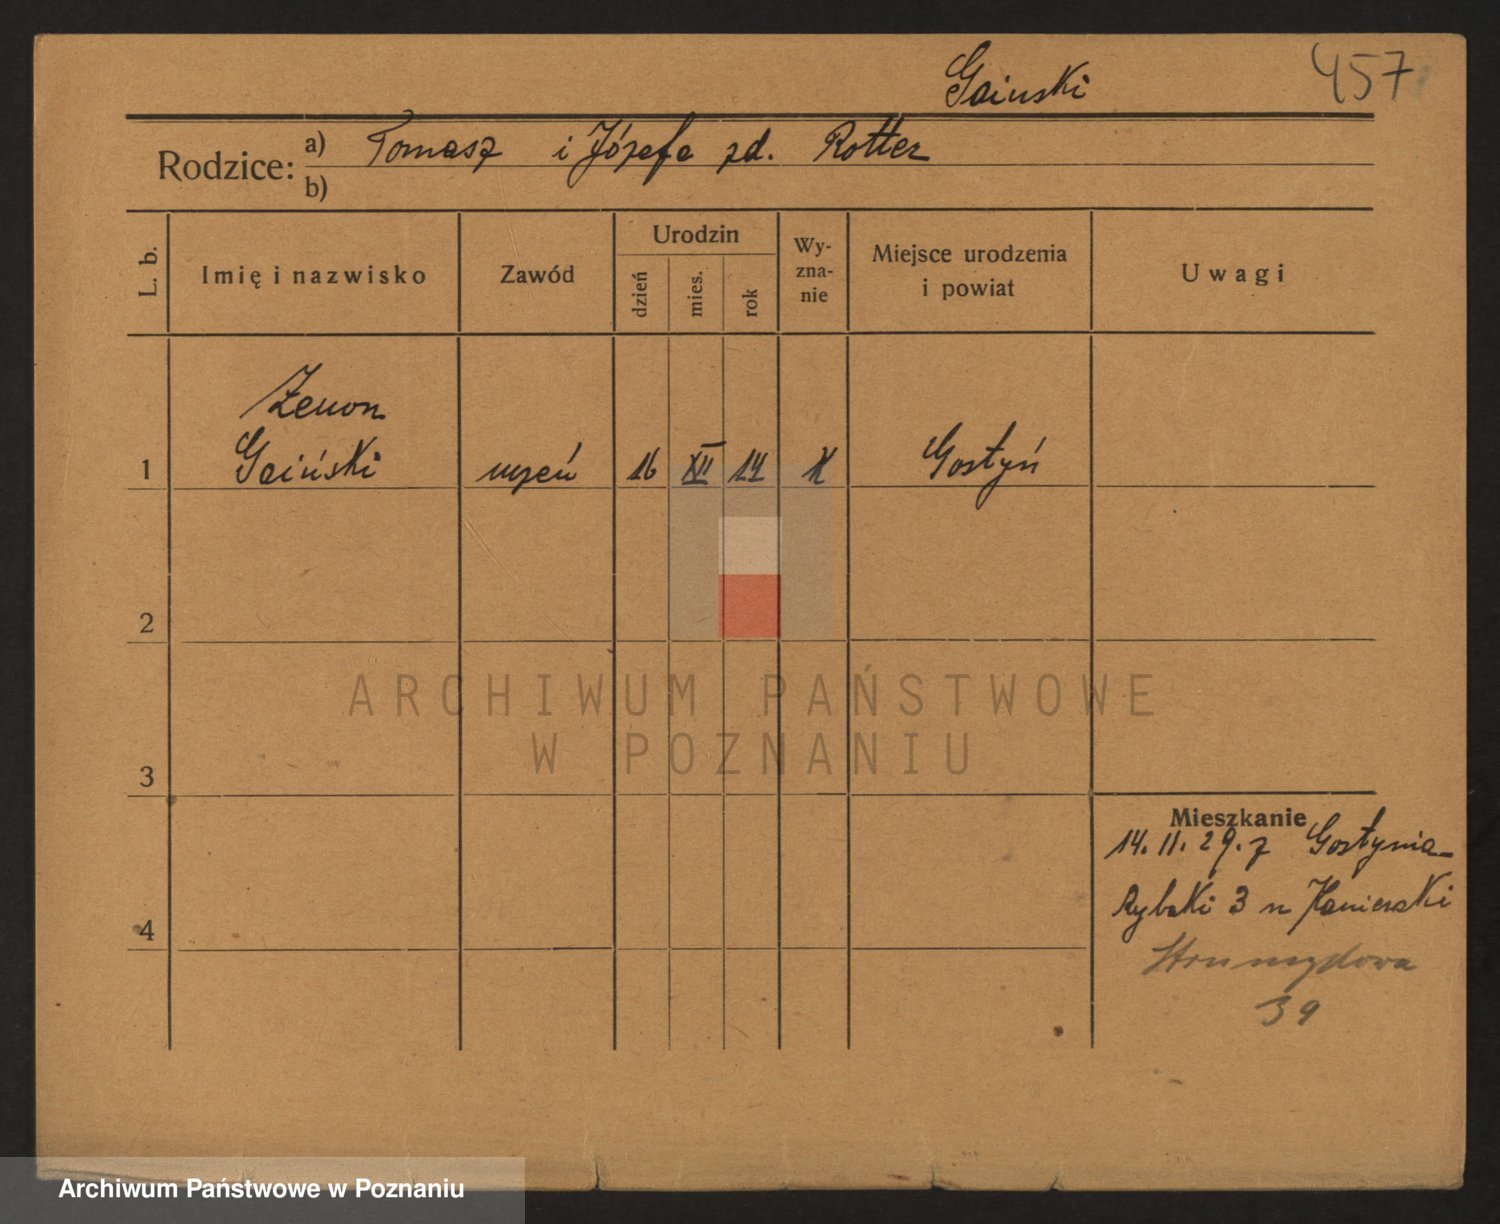 Gaiński 457
Rodzice: a) Tomasz i Józefa zd. Rotter
b)
L. b. Imię i nazwisko Zawód Urodzin dzień mies. rok Wy-zna-nie Miejsce urodzenia i powiat Uwagi
Zenon
1 Gaiński uczeń 16 XII 14 K Gostyń
2
ARCHIWUM PAŃSTWOWE
W POZNANIU
3
Mieszkanie
14. 11. 29. z Gostynia
Rybaki 3 u
4
39
Archiwum Państwowe w Poznaniu